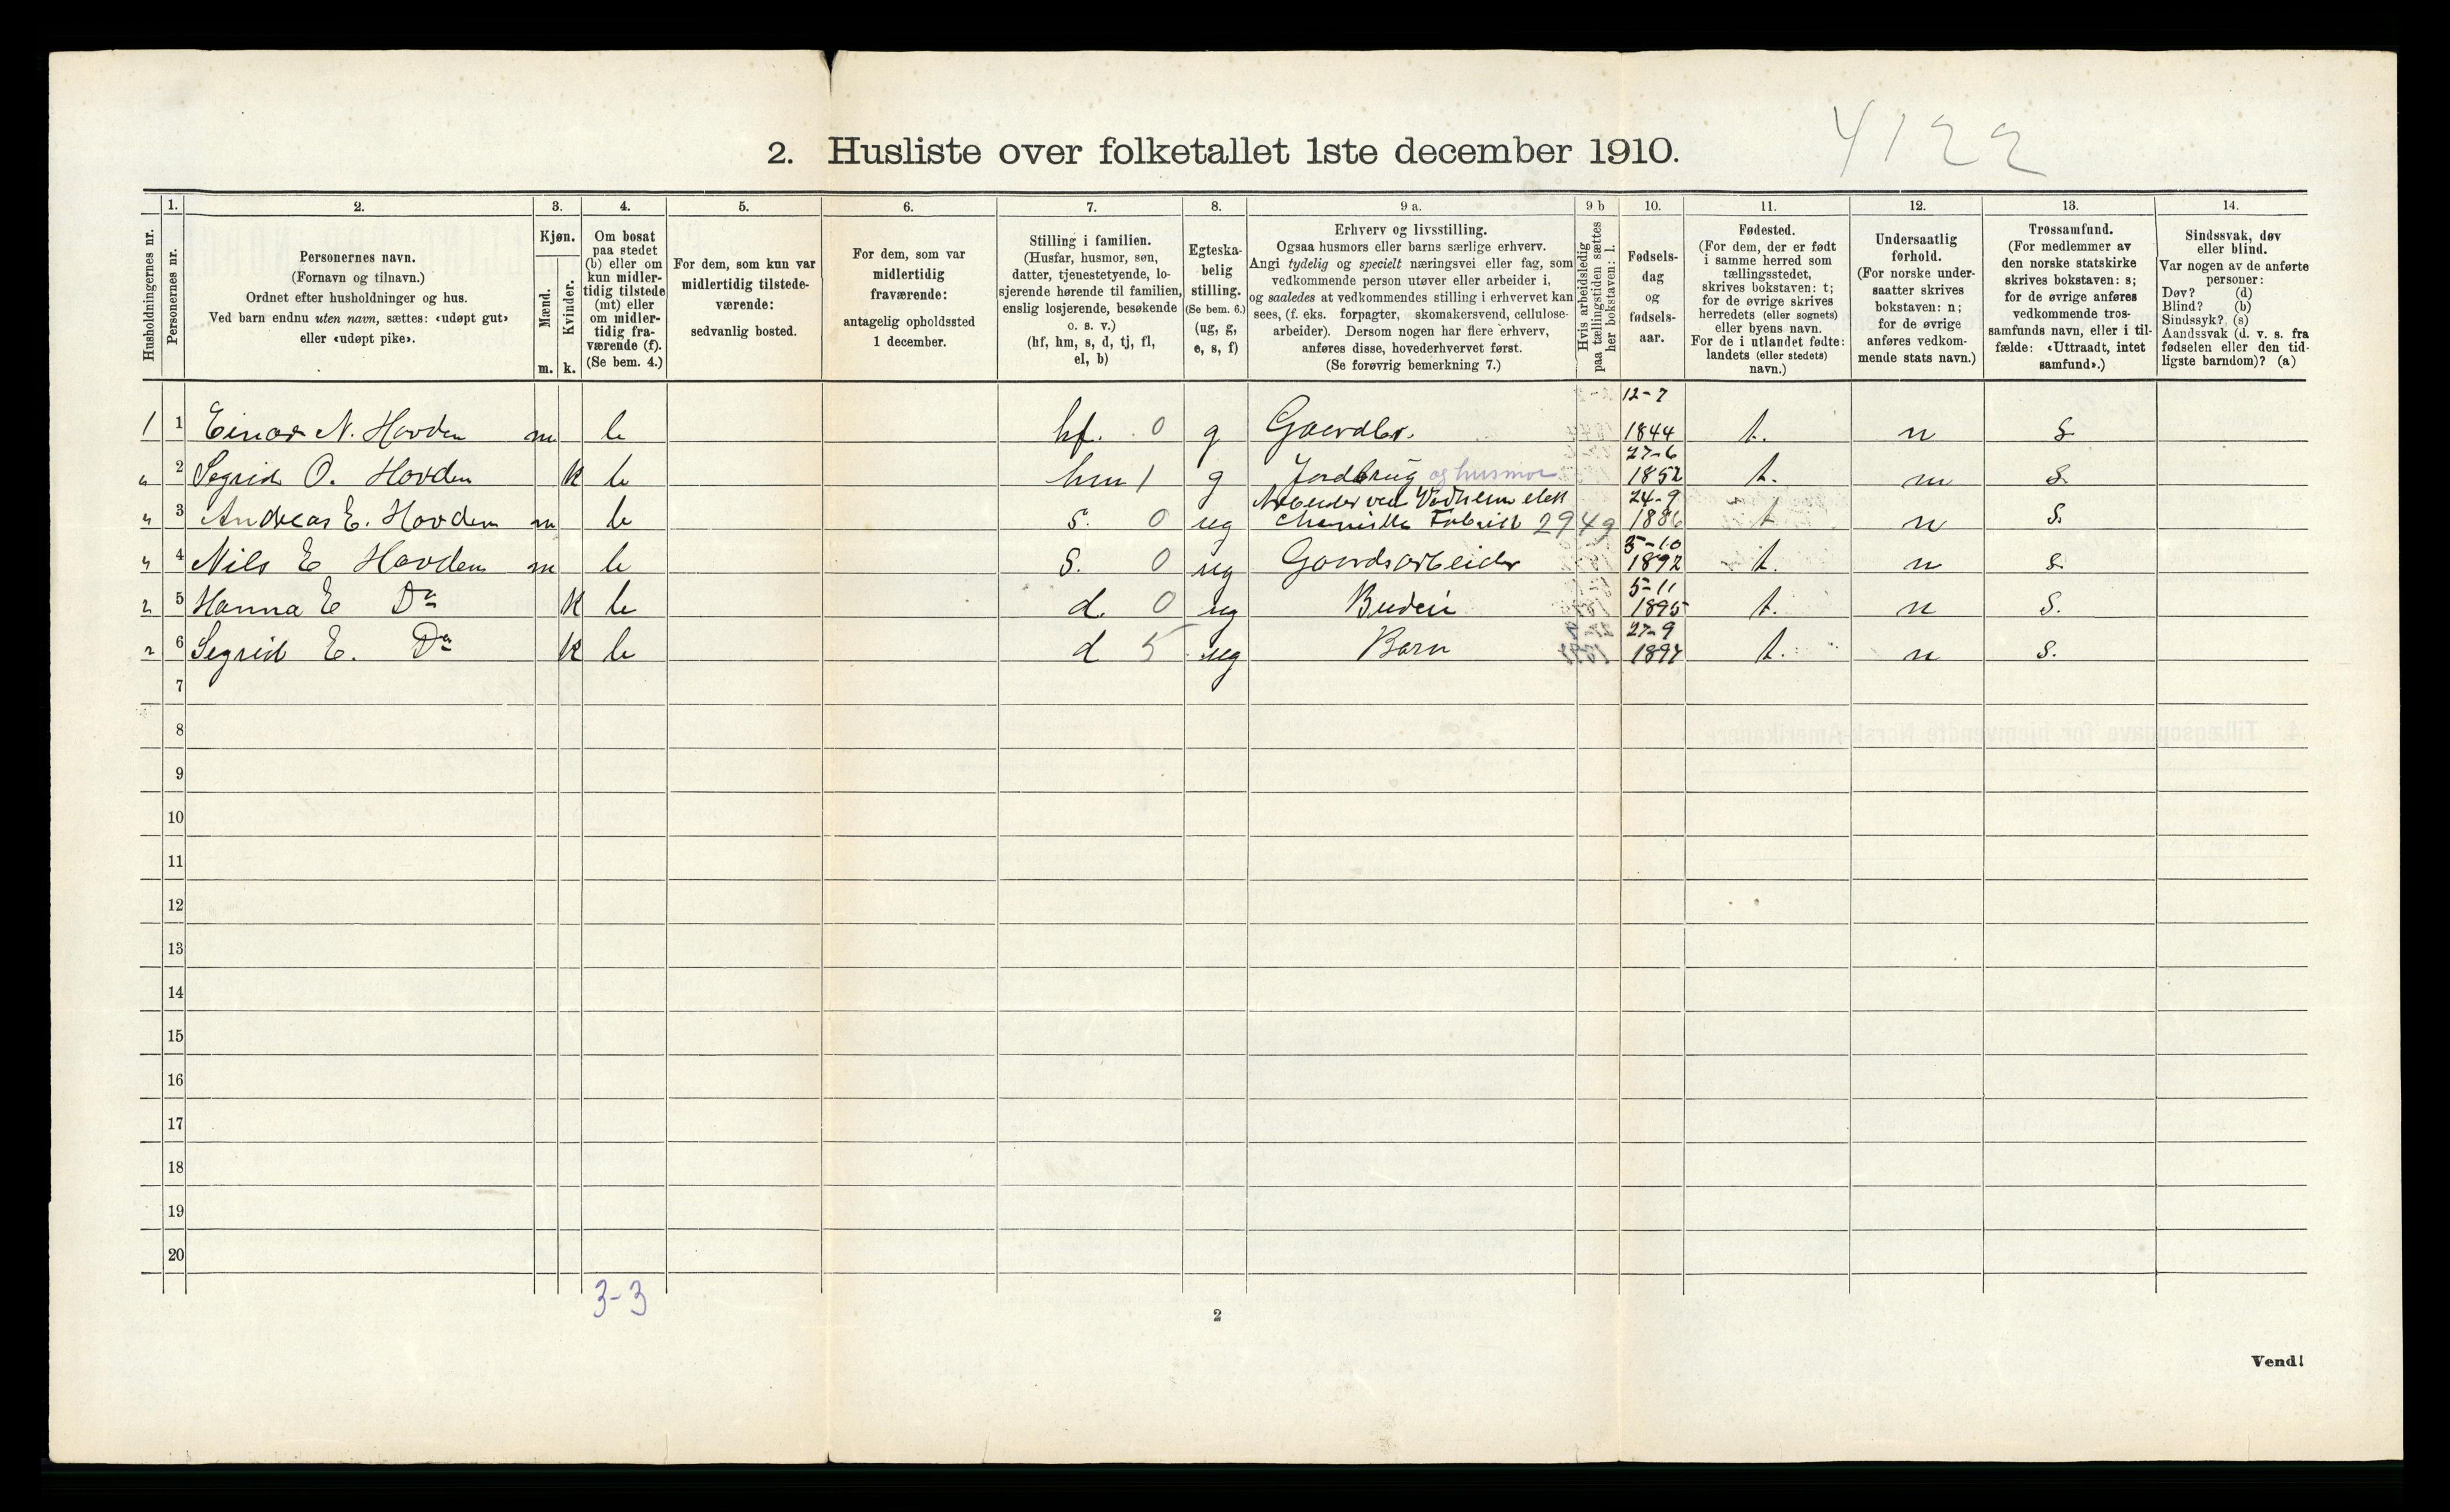 4122
2. Husliste over folketallet 1ste december 1910.
Husholdningernes nr.
1.
Personernes nr.
2.
Personernes navn.
(Fornavn og tilnavn.)
Ordnet efter husholdninger og hus.
Ved barn endnu uten navn, sættes: «udøpt gut»
eller «udøpt pike».
3.
Kjøn.
Mænd.
Kvinder.
m. k.
4.
Om bosat
paa stedet
(b) eller om
kun midler-
tidig tilstede
(mt) eller
om midler-
tidig fra-
værende (f).
(Se bem. 4.)
5.
For dem, som kun var
midlertidig tilstede-
værende:
sedvanlig bosted.
6.
For dem, som var
midlertidig
fraværende:
antagelig opholdssted
1 december.
7.
Stilling i familien.
(Husfar, husmor, søn,
datter, tjenestetyende, lo-
sjerende hørende til familien,
enslig losjerende, besøkende
o. s. v.)
(hf, hm, s, d, tj, fl,
el, b)
8.
Egteska-
belig
stilling.
(Se bem. 6.)
(ug, g,
e, s, f)
9 a.
Erhverv og livsstilling.
Ogsaa husmors eller barns særlige erhverv.
Angi tydelig og specielt næringsvei eller fag, som
vedkommende person utøver eller arbeider i,
og saaledes at vedkommendes stilling i erhvervet kan
sees, (f. eks. forpagter, skomakersvend, cellulose-
arbeider). Dersom nogen har flere erhverv,
anføres disse, hovederhvervet først.
(Se forøvrig bemerkning 7.)
9 b
Hvis arbeidsledig
paa tællingstiden sættes
her bokstaven: l.
10.
Fødsels-
dag
og
fødsels-
aar.
11.
Fødested.
(For dem, der er født
i samme herred som
tællingsstedet,
skrives bokstaven: t;
for de øvrige skrives
herredets (eller sognets)
eller byens navn.
For de i utlandet fødte:
landets (eller stedets)
navn.)
12.
Undersaatlig
forhold.
(For norske under-
saatter skrives
bokstaven: n;
for de øvrige
anføres vedkom-
mende stats navn.)
13.
Trossamfund.
(For medlemmer av
den norske statskirke
skrives bokstaven: s;
for de øvrige anføres
vedkommende tros-
samfunds navn, eller i til-
fælde: «Uttraadt, intet
samfund».)
14.
Sindssvak, døv
eller blind.
Var nogen av de anførte
personer:
Døv? (d)
Blind? (b)
Sindssyk? (s)
Aandssvak (d. v. s. fra
fødselen eller den tid-
ligste barndom)? (a)
12-7
1 1 Einar N. Hovden m b hf. 0 g Gaardbr. 1844 t. n s
27-6
" 2 Segrid O. Hovden k b hm 1 g Jordbrug og husmor 1852 t. n s.
Arbeider ved Vadheim elek 24-9
" 3 Andreas E. Hovden m b s. 0 ug Fabrik 2949 1886 t n s.
5-10
" 4 Nils E Hovden m b s. 0 ug Gaardsarbeider 1892 t. n s.
5-11
" 5 Hanna E Do k b d. 0 ug Budeie 1895 t. n s.
27-9
" 6 Segrid E. Do k b d 5 ug Barn 1897 t. n s.
7
8
9
10
11
12
13
14
15
16
17
18
19
20
3-3
2
Vend!